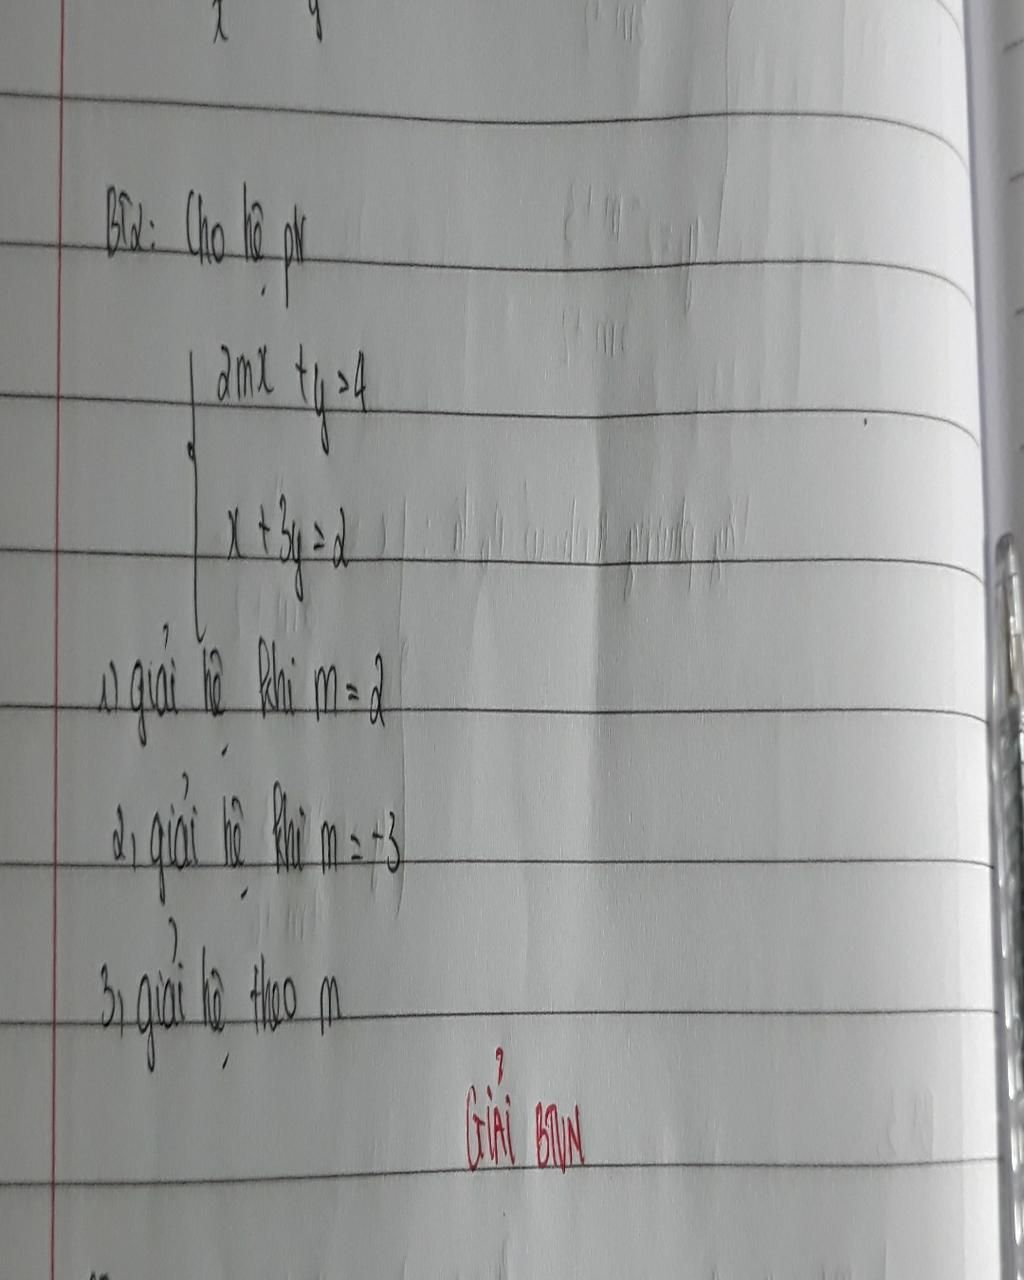 x y
BT2: Cho hệ pt
2mx + y = 4
x + 3y = 2
1) giải hệ khi m = 2
2, giải hệ khi m = -3
3, giải hệ theo m
GIẢI BTVN